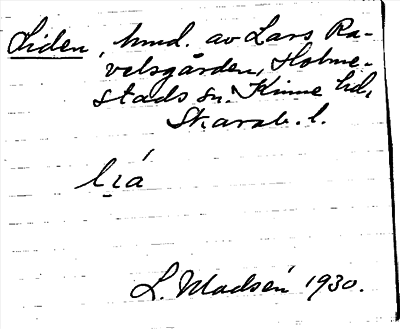 Liden, hmd. av Lars Ra-
velsgården, Holme-
stads sn. Kinne hd,
Skarab. l.
lıá
L. Madsén 1930.